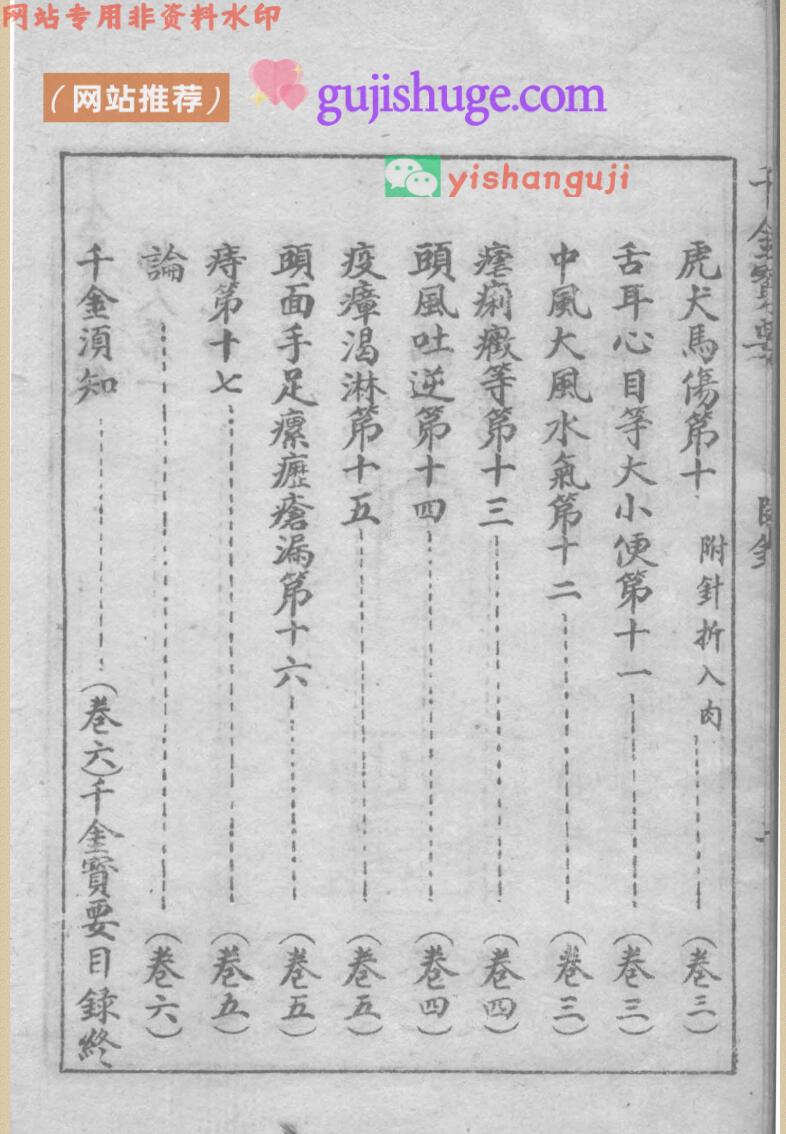 网站专用非资料水印
（网站推荐）
gujishuge.com
yishanguji
千金寶要
虎犬馬傷第十 附針折入肉（卷三）
舌耳心目等大小便第十一（卷三）
中風大風水氣第十二（卷三）
瘧痢瘕等第十三（卷四）
頭風吐逆第十四（卷四）
疫瘴渴淋第十五（卷五）
頭面手足瘰癧瘡漏第十六（卷五）
痔第十七（卷五）
論（卷六）
千金須知（卷六）千金寶要目錄終